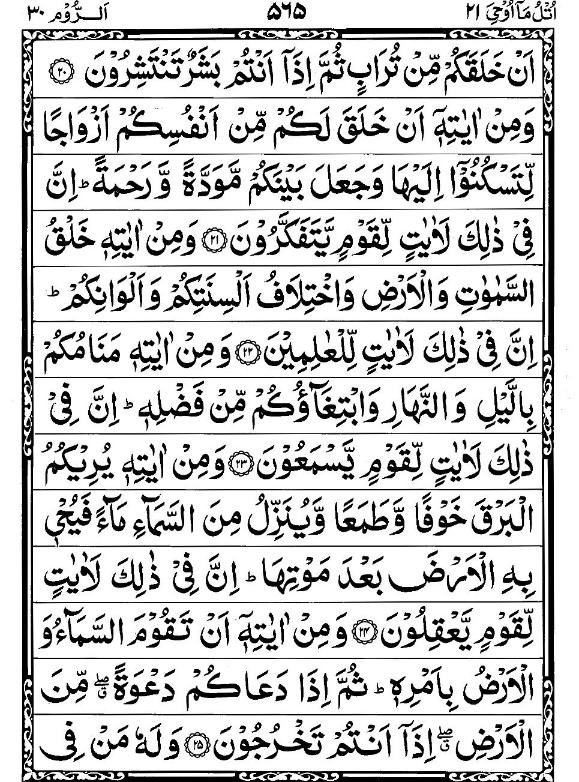 اُتْلُ مَآ اُوْحِیَ ٢١ ٥٦٥ اَلرُّوْم ٣٠
اَنْ خَلَقَكُمْ مِّنْ تُرَابٍ ثُمَّ اِذَآ اَنْتُمْ بَشَرٌ تَنْتَشِرُوْنَ ٢٠
وَمِنْ اٰيٰتِهٖٓ اَنْ خَلَقَ لَكُمْ مِّنْ اَنْفُسِكُمْ اَزْوَاجًا
لِّتَسْكُنُوْٓا اِلَيْهَا وَجَعَلَ بَيْنَكُمْ مَّوَدَّةً وَّرَحْمَةً ؕ اِنَّ
فِیْ ذٰلِكَ لَاٰيٰتٍ لِّقَوْمٍ يَّتَفَكَّرُوْنَ ٢١ وَمِنْ اٰيٰتِهٖ خَلْقُ
السَّمٰوٰتِ وَالْاَرْضِ وَاخْتِلَافُ اَلْسِنَتِكُمْ وَاَلْوَانِكُمْ ؕ
اِنَّ فِیْ ذٰلِكَ لَاٰيٰتٍ لِّلْعٰلِمِيْنَ ٢٢ وَمِنْ اٰيٰتِهٖ مَنَامُكُمْ
بِالَّيْلِ وَالنَّهَارِ وَابْتِغَآؤُكُمْ مِّنْ فَضْلِهٖ ؕ اِنَّ فِیْ
ذٰلِكَ لَاٰيٰتٍ لِّقَوْمٍ يَّسْمَعُوْنَ ٢٣ وَمِنْ اٰيٰتِهٖ يُرِيْكُمُ
الْبَرْقَ خَوْفًا وَّطَمَعًا وَّيُنَزِّلُ مِنَ السَّمَآءِ مَآءً فَيُحْیٖ
بِهِ الْاَرْضَ بَعْدَ مَوْتِهَا ؕ اِنَّ فِیْ ذٰلِكَ لَاٰيٰتٍ
لِّقَوْمٍ يَّعْقِلُوْنَ ٢٤ وَمِنْ اٰيٰتِهٖٓ اَنْ تَقُوْمَ السَّمَآءُ وَ
الْاَرْضُ بِاَمْرِهٖ ؕ ثُمَّ اِذَا دَعَاكُمْ دَعْوَةً ۖ مِّنَ
الْاَرْضِ ۖ اِذَآ اَنْتُمْ تَخْرُجُوْنَ ٢٥ وَلَهٗ مَنْ فِی